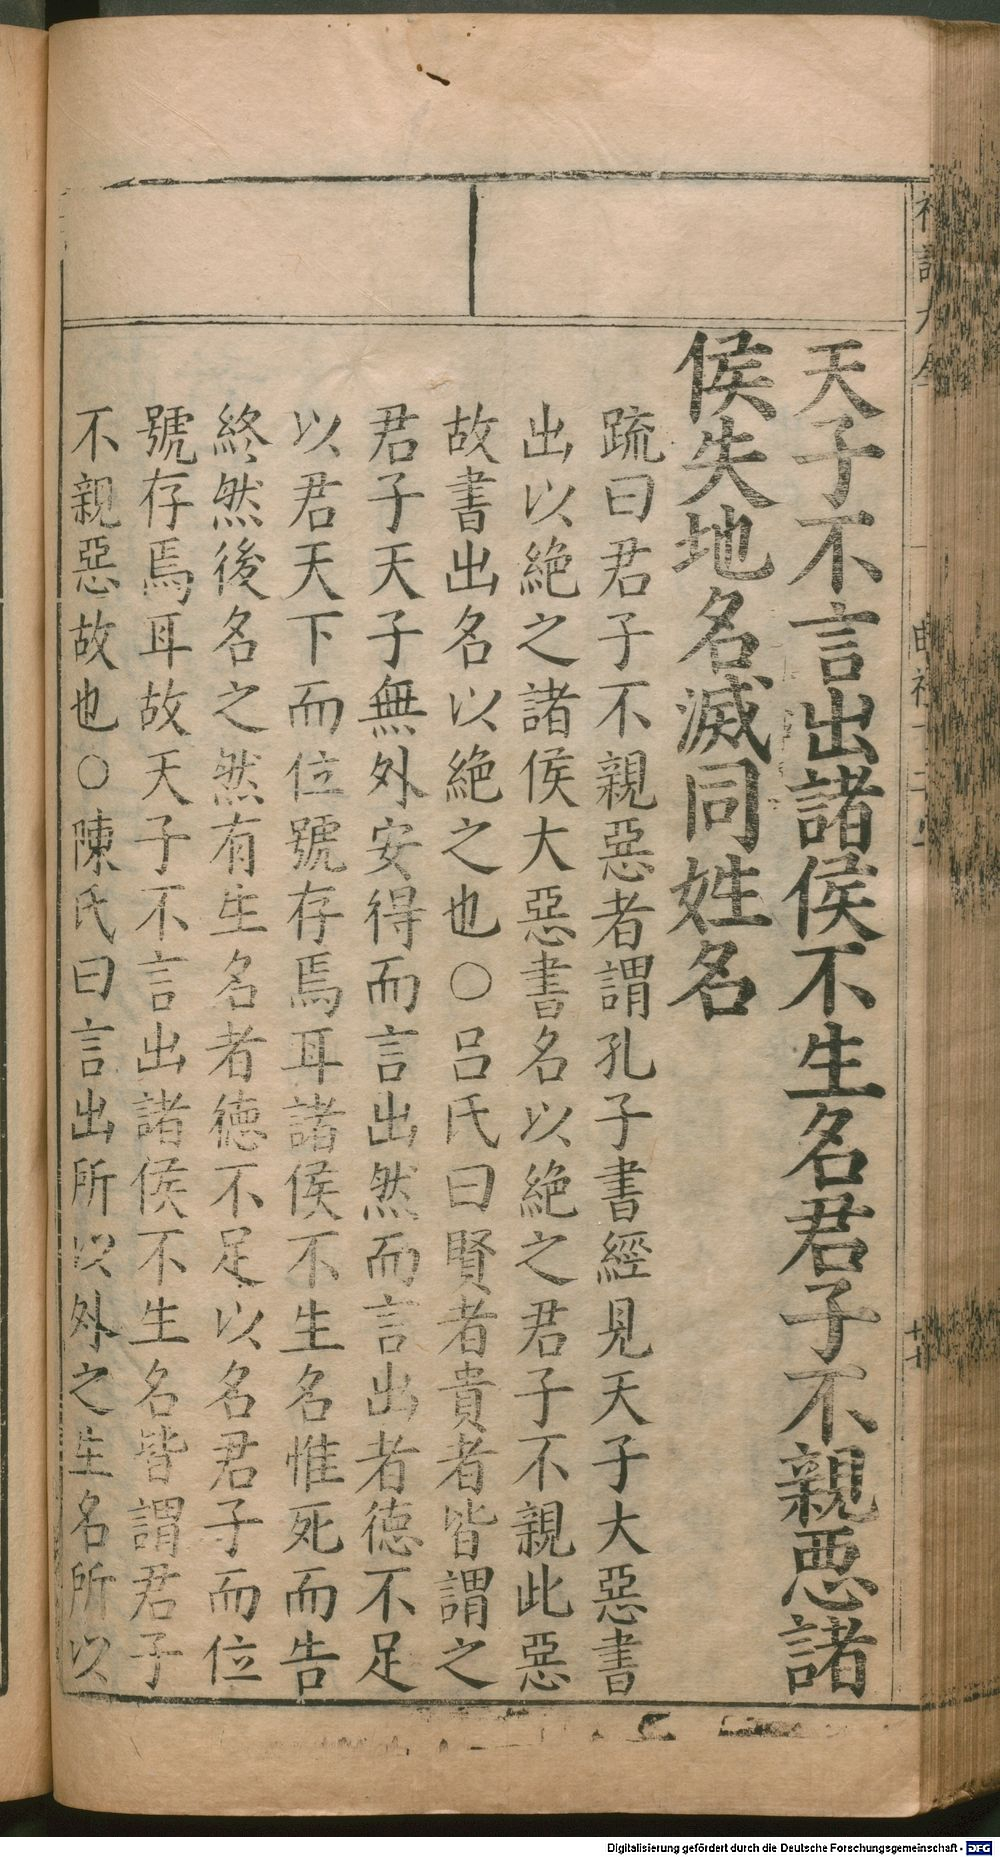 天子不言出諸侯不生名君子不親惡諸
侯失地名滅同姓名
疏曰君子不親惡者謂孔子書經見天子大惡書
出以絶之諸侯大惡書名以絶之君子不親此惡
故書出名以絶之也○呂氏曰賢者貴者皆謂之
君子天子無外安得而言出然而言出者徳不足
以君天下而位號存焉耳諸侯不生名惟死而告
終然後名之然有生名者徳不足以名君子而位
號存焉耳故天子不言出諸侯不生名皆謂君子
不親惡故也○陳氏曰言出所以外之生名所以
Digitalisierung gefördert durch die Deutsche Forschungsgemeinschaft - DFG